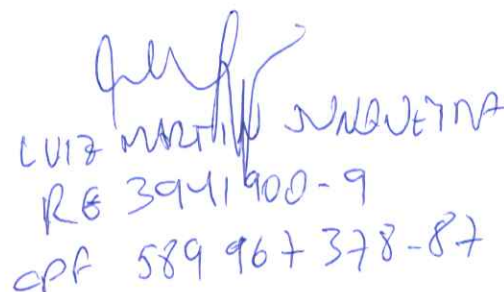 LUIZ MARTIN JUNQUEIRA
RG 3941900-9
CPF 589 967 378-87